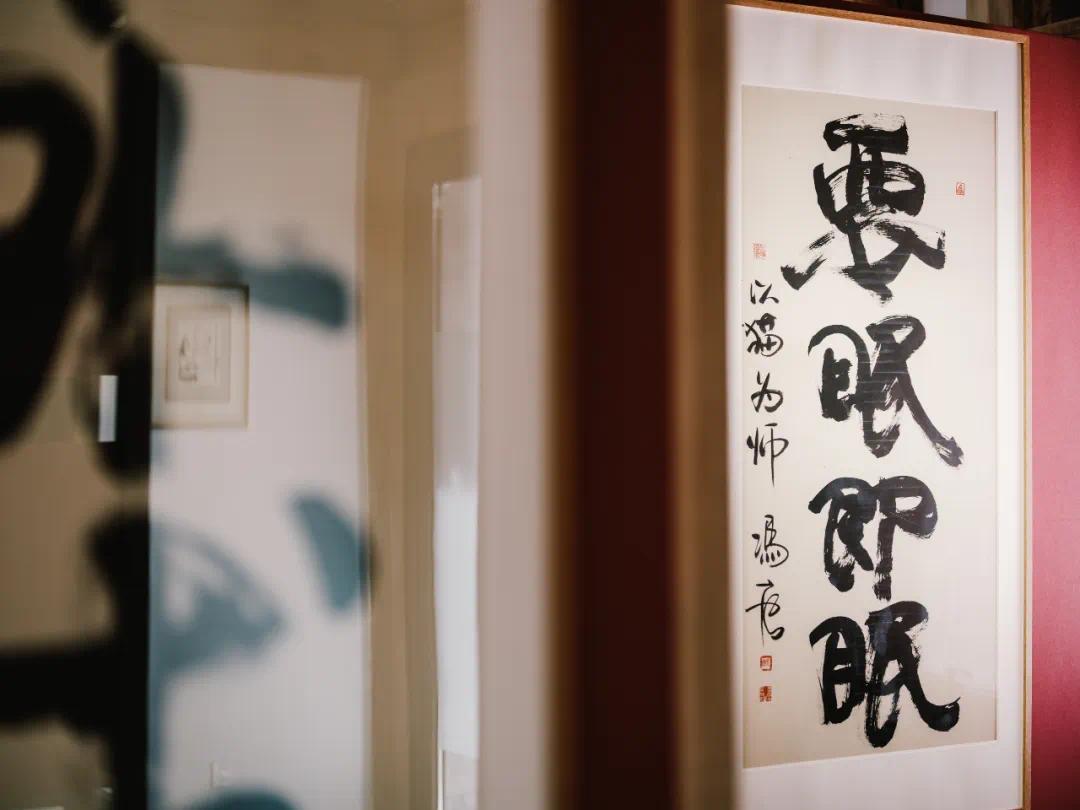 要眠即眠
以猫为师 冯唐